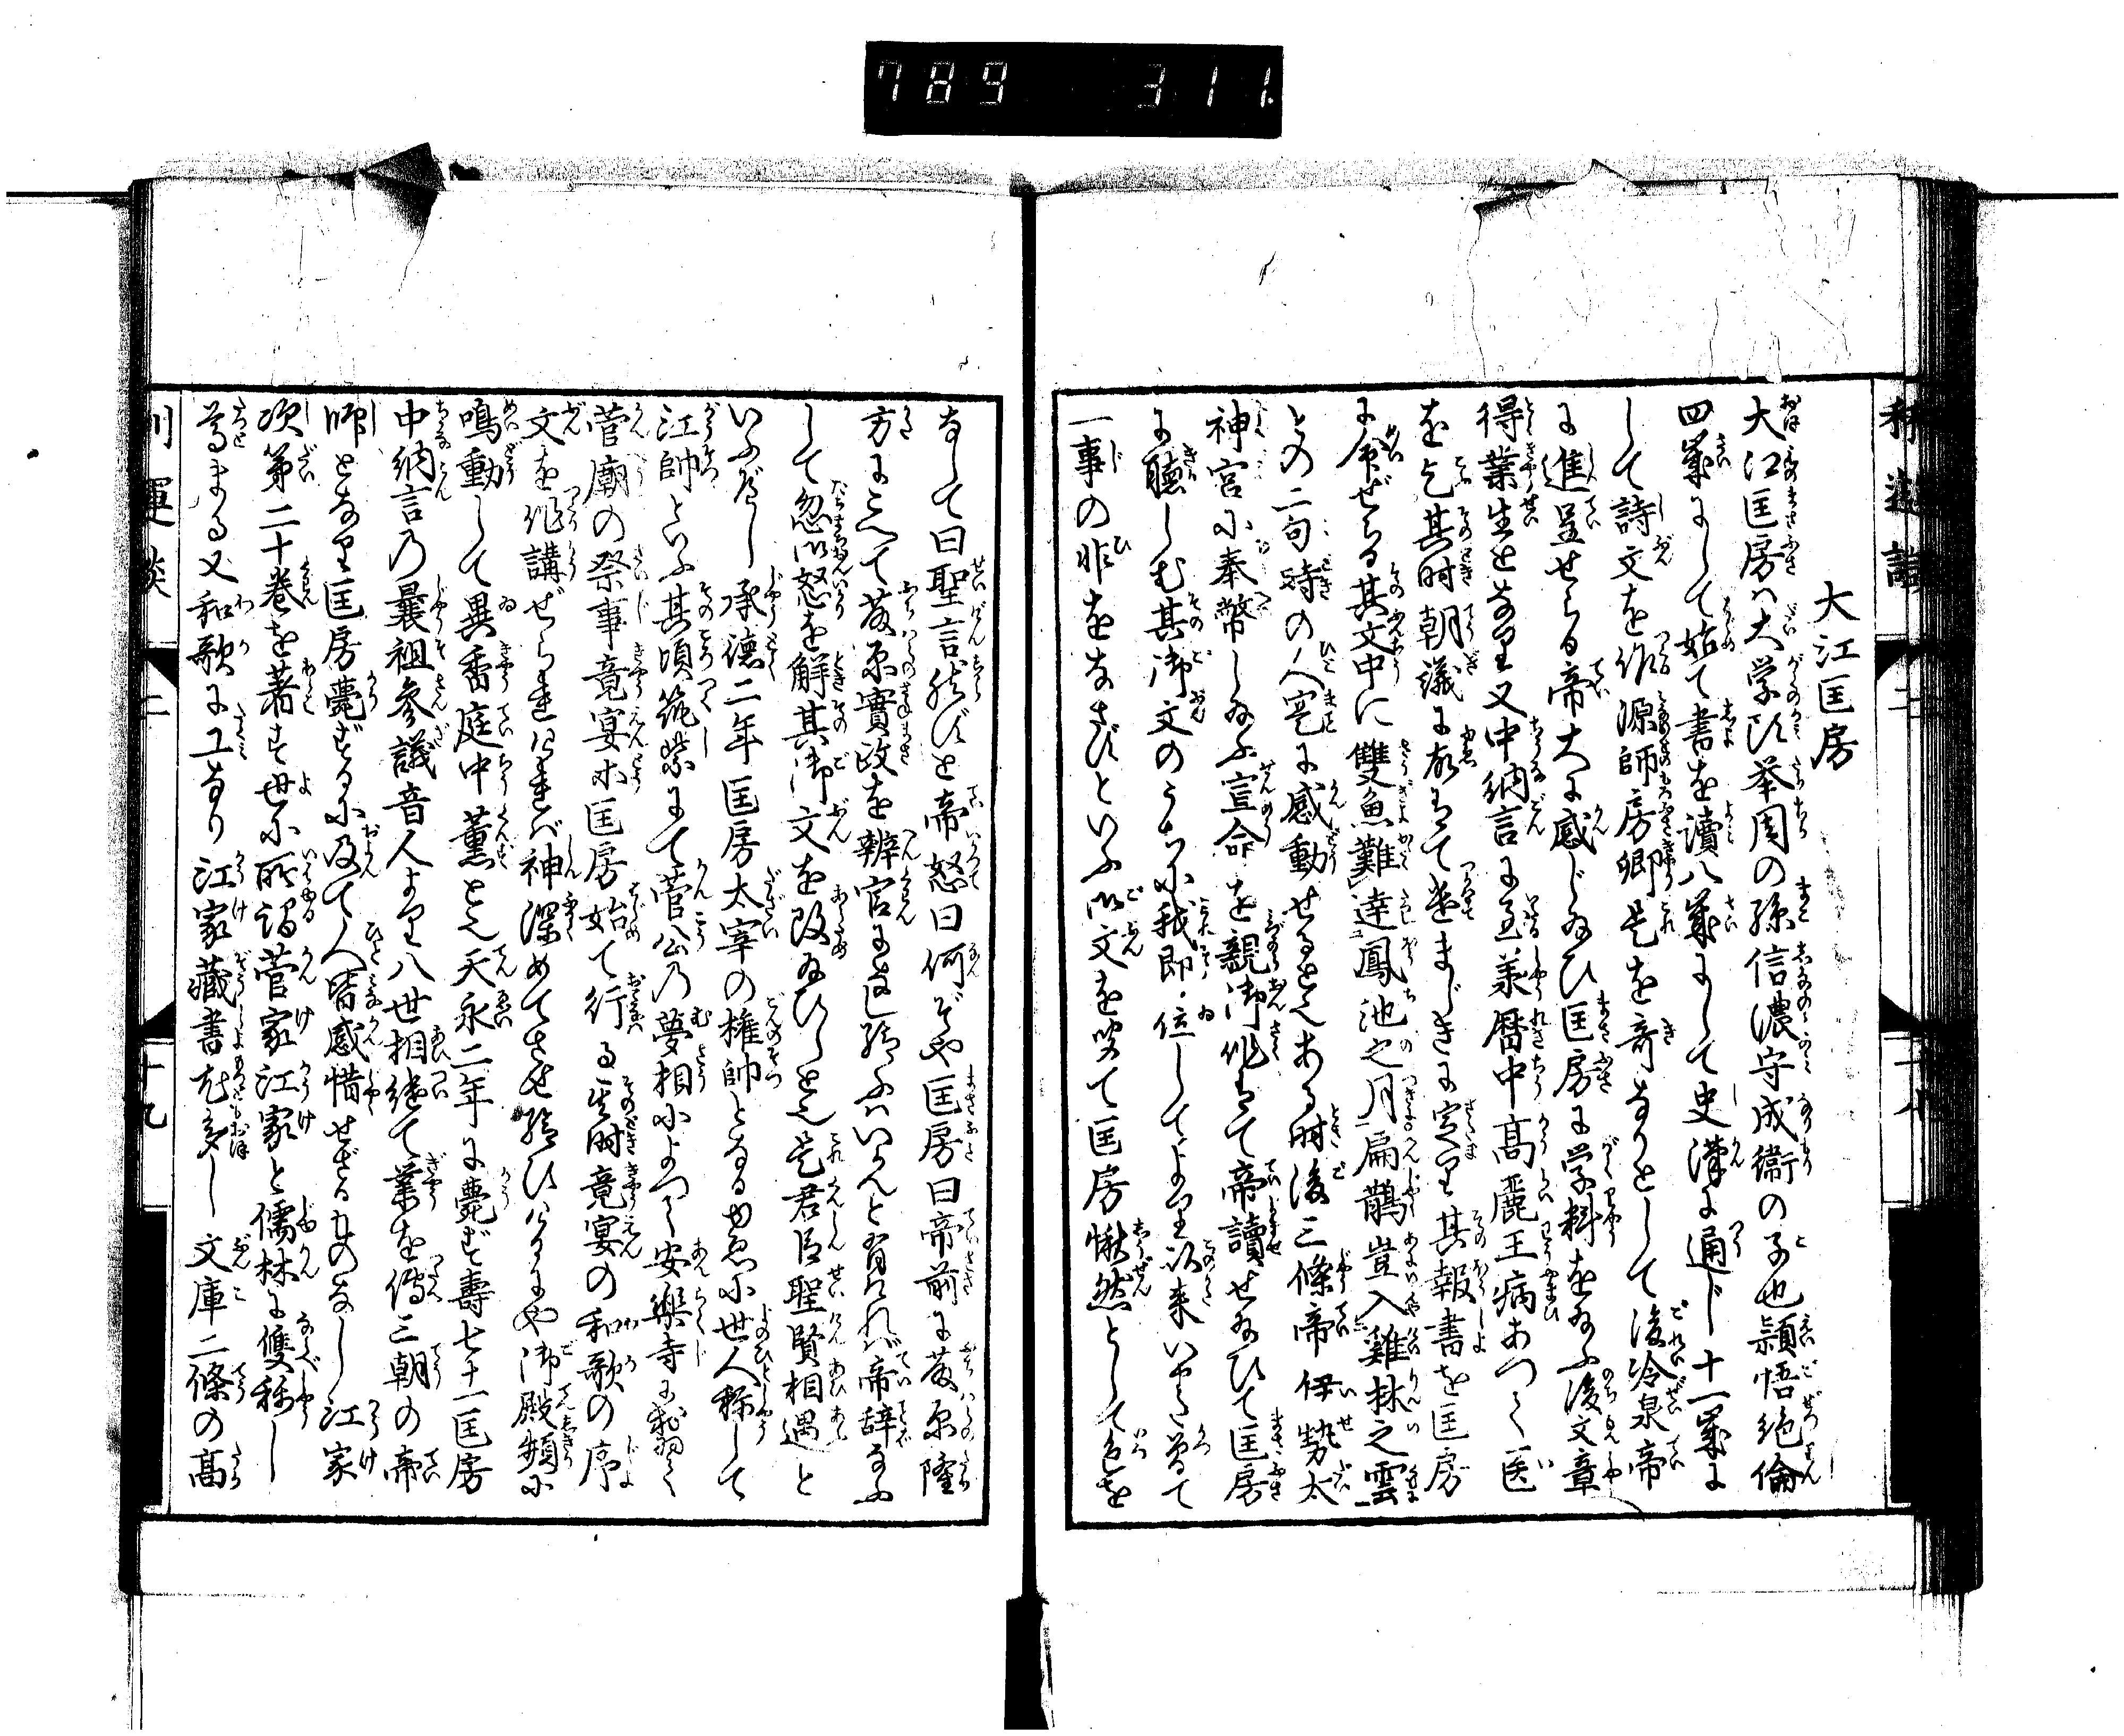 789 311.
大江匡房
大江匡房ハ大学頭挙周の孫信濃守成衡の子也穎悟絶倫
四歳にして始て書を讀八歳にして史漢に通じ十一歳に
して詩文を作源師房卿是を奇なりとして後冷泉帝
に進呈せらる帝大に感じ給ひ匡房に学料を給ふ後文章
得業生となり又中納言に至承暦中高麗王病あつく医
を乞其時朝議に有て遣まじきに定り其報書を匡房
に命ぜらる其文中に雙魚難達鳳池之月扁鵲豈入雞林之雲
との二句時の人寔に感動せるとぞある時後三條帝伊勢太
神宮に奉幣し給ふ宣命を親御作有て帝讀せ給ひて匡房
に聴しむ其御文のうちに我即位してより以来いまだ曽て
一事の非をなさずといふ御文を笑て匡房愀然として色を
なして曰聖言然ずと帝怒曰何ぞや匡房曰帝前に藤原隆
方にこえて藤原實政を辨官に進し給ふハいかんと有けれバ帝辞なふ
して忽御怒を解其御文を改給ひしとぞ是君臣聖賢相遇と
いふべし承徳二年匡房太宰の権帥となるゆゑに世人称して
江帥といふ其頃筑紫にて菅公の夢相によつて安樂寺に
菅廟の祭事竟宴等匡房始て行る其時竟宴の和歌の序
文を作講ぜられけれバ神深めでさせ給ひけるにや御殿頻に
鳴動して異香庭中に薫とぞ天永二年に薨ず壽七十一匡房
中納言乃曩祖参議音人より八世相継て業を傳三朝の帝
師となり匡房薨ずるに及て人皆感惜せざるものなし江家
次第二十巻を著す世に所謂菅家江家と儒林に雙称し
尊まる又和歌に工なり江家藏書尤多し文庫二條の高
二
十九